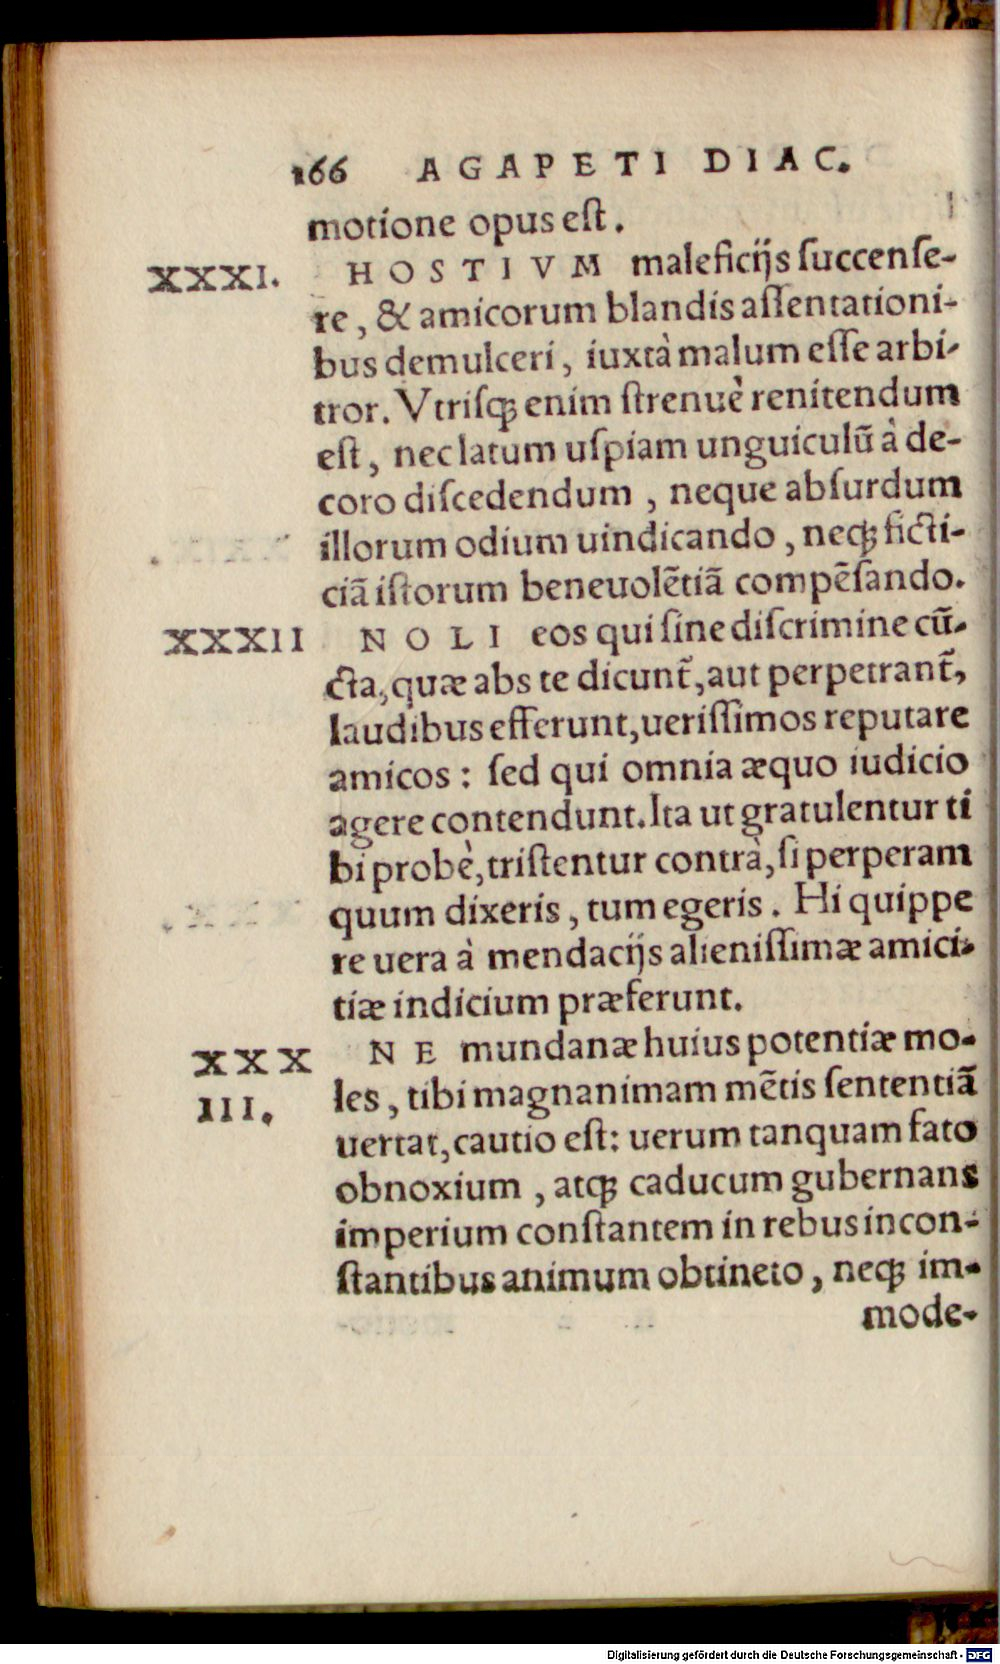 166 AGAPETI DIAC.
motione opus est.
XXXI. HOSTIVM maleficijs succense-
re, & amicorum blandis assentationi-
bus demulceri, iuxtà malum esse arbi-
tror. Vtrisqꝫ enim strenuè renitendum
est, nec latum uspiam unguiculũ à de-
coro discedendum, neque absurdum
illorum odium uindicando, neqꝫ ficti-
ciã istorum beneuolẽtiã compẽsando.
XXXII NOLI eos qui sine discrimine cũ-
cta, quæ abs te dicunt̃, aut perpetrant̃,
laudibus efferunt, uerissimos reputare
amicos: sed qui omnia æquo iudicio
agere contendunt. Ita ut gratulentur ti
bi probè, tristentur contrà, si perperam
quum dixeris, tum egeris. Hi quippe
re uera à mendacijs alienissimæ amici-
tiæ indicium præferunt.
XXX NE mundanæ huius potentiæ mo-
III. les, tibi magnanimam mẽtis sententiã
uertat, cautio est: uerum tanquam fato
obnoxium, atqꝫ caducum gubernans
imperium constantem in rebus incon-
stantibus animum obtineto, neqꝫ im-
mode-
Digitalisierung gefördert durch die Deutsche Forschungsgemeinschaft - DFG